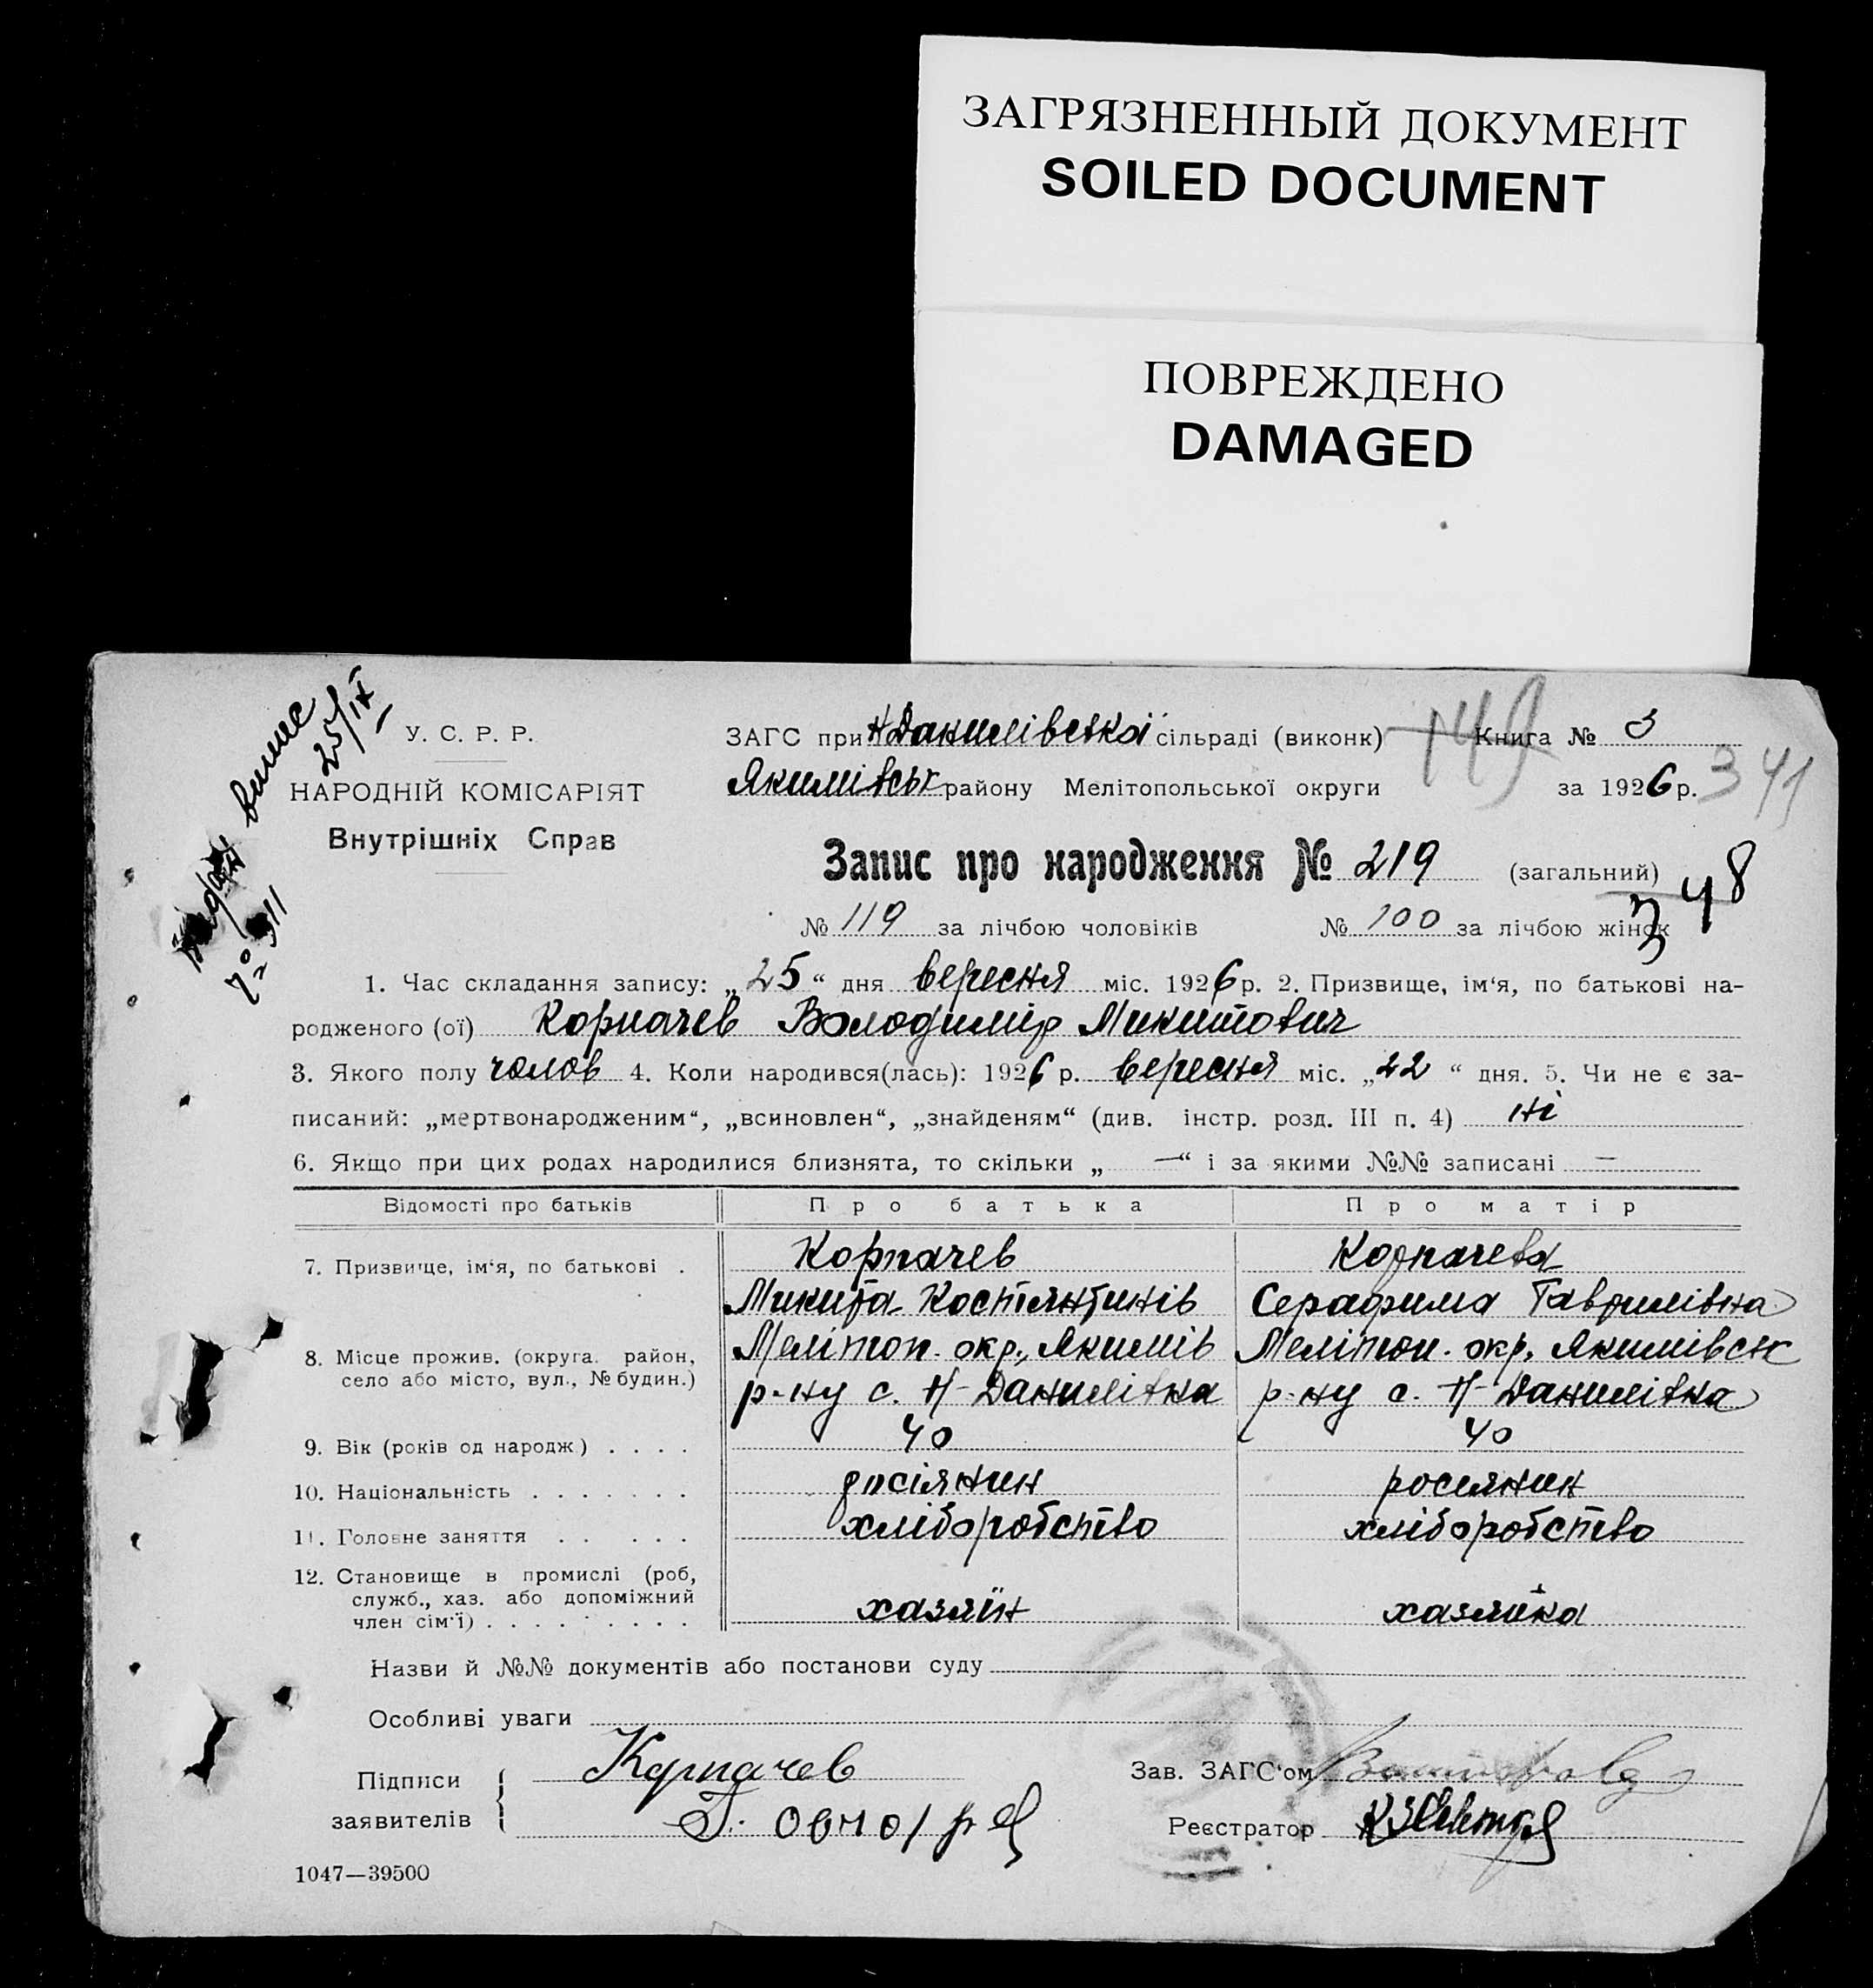 ЗАГРЯЗНЕННЫЙ ДОКУМЕНТ
SOILED DOCUMENT
ПОВРЕЖДЕНО
DAMAGED
видан випис
25/IX
№ 311
У. С. Р. Р.
НАРОДНІЙ КОМІСАРІЯТ
Внутрішніх Справ
ЗАГС при Н Данилівській сільраді (виконк) 149 Книга № 3
Якимівськ району Мелітопольської округи за 1926 р. 341
Запис про народження № 219 (загальний) 348
№ 119 за лічбою чоловіків № 100 за лічбою жінок
1. Час складання запису: „25“ дня вересня міс. 1926 р. 2. Призвище, ім‘я, по батькові на-
родженого (ої) Корпачев Володимір Микитович
3. Якого полу чолов 4. Коли народився(лась): 1926 р. вересня міс. „22“ дня. 5. Чи не є за-
писаний: „мертвонародженим“, „всиновлен“, „знайденям“ (див. інстр. розд. III п. 4) ні
6. Якщо при цих родах народилися близнята, то скільки „ — “ і за якими №№ записані —
Відомості про батьків Про батька Про матір
7. Призвище, ім‘я, по батькові . Корпачев Корпачева
Микита Костянтинів Серафима Гаврилівна
8. Місце прожив. (округа. район, село або місто, вул., № будин.) Меліտоп. окр., Якимів Мелітоп. окр, Якимівск
р-ну с. Н-Данилівка р-ну с. Н-Данилівка
9. Вік (років од народж) . . . . 40 40
10. Національність . . . . . . . росіянин росиянин
11. Головне заняття . . . . . хліборобство хліборобство
12. Становище в промислі (роб,
служб., хаз. або допоміжний
член сім‘ї) . . . . . . . . хазяїн хазяйка
Назви й №№ документів або постанови суду
Особливі уваги
Підписи заявителів Корпачев
Зав. ЗАГС‘ом
Реєстратор
1047—39500